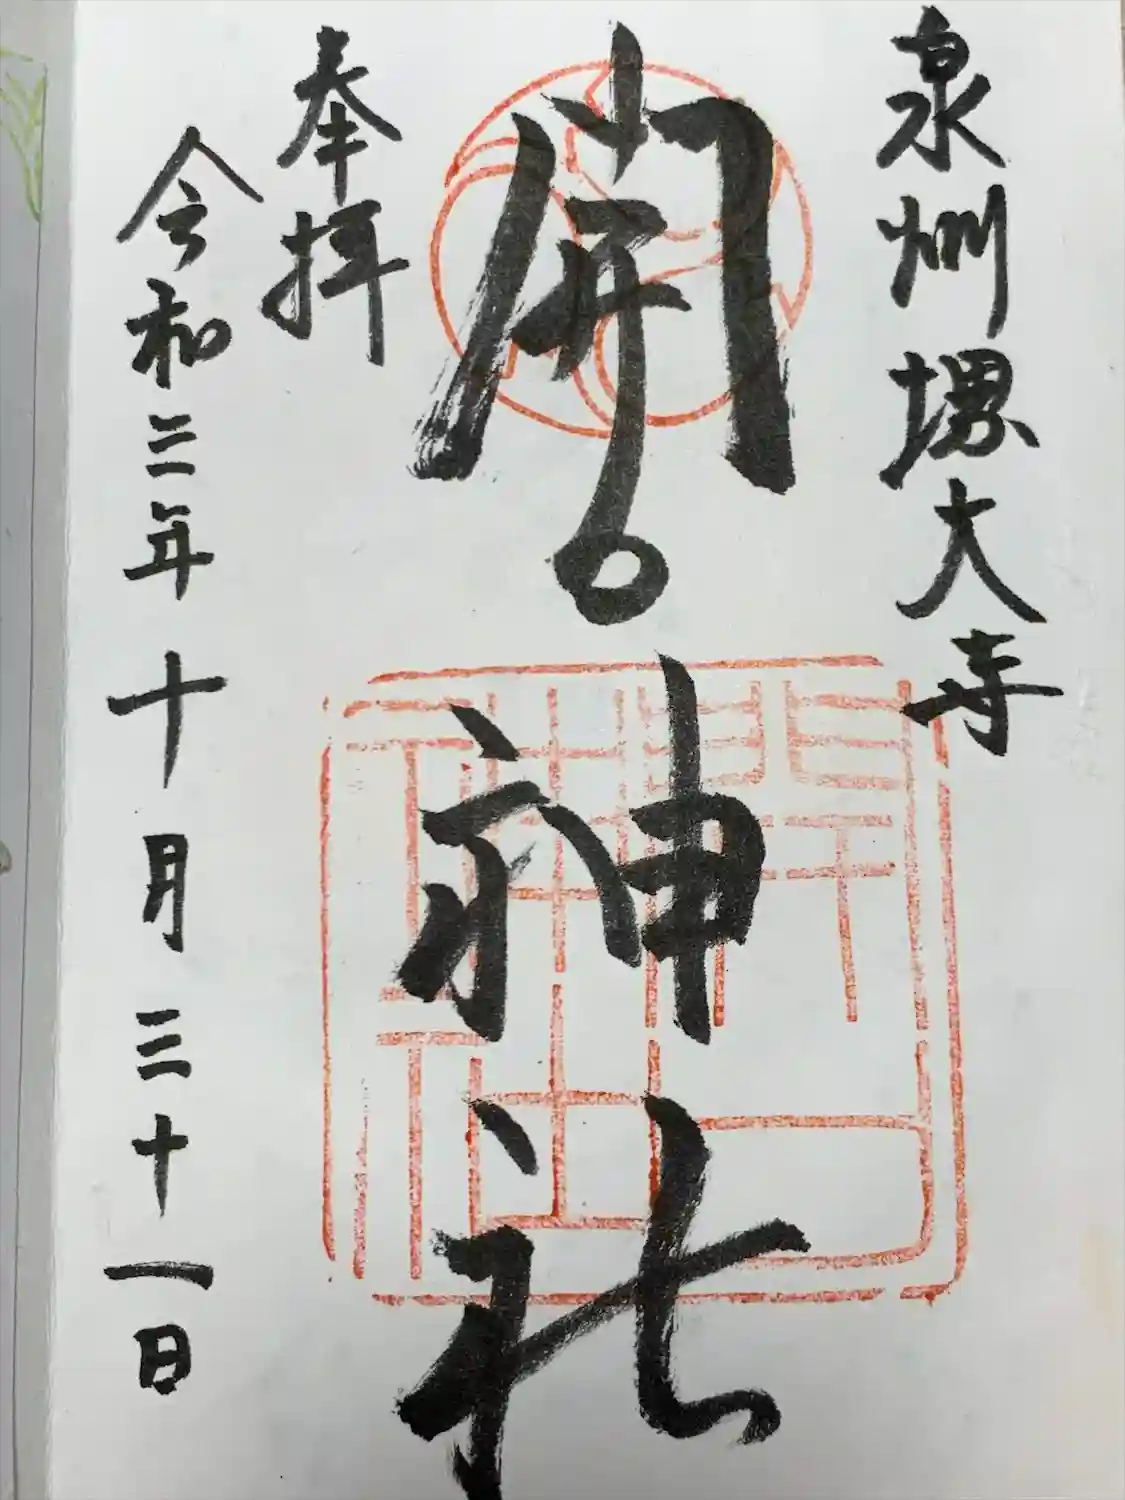 泉州堺大寺
開口神社
奉拝
令和二年十月三十一日